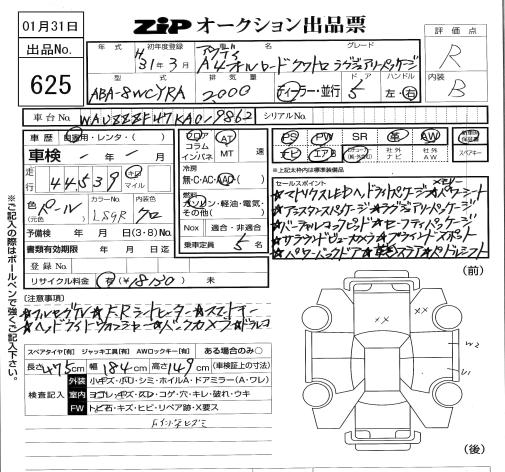 01月31日
ZiP オークション出品票
出品No.
625
評価点
R
内装
B
年式 初年度登録 車名 グレード
H31年3月 アウディ A4オールロードクワトロ ラグジュアリーパッケージ
型式 排気量 ドア ハンドル
ABA-8WCYRA 2,000 ディーラー・並行 5 左・右
車台No. WAUZZZF47KA019862 シリアルNo.
車歴 自家用・レンタ・( )
車検 年 月
走行 44539 キロ マイル
色(元色) パール カラーNo. LSGR 内装色 クロ
予備検 年 月 日(3・8)No.
書類有効期限 年 月 日迄
登録No.
リサイクル料金 有(¥18130) 未
フロア コラム インパネ
AT MT 速
冷房
無・C・AC・AAC
燃料
ガソリン・軽油・電気・その他( )
Nox 適合・非適合
乗車定員 5名
PS PW SR 革 AW 新車時保証書
ナビ エアB 社外ナビ 社外AW スペアキー
※上記純正は標準装備品
セールスポイント
★マトリクスLEDヘッドライトパッケージ★パワーシート
★アシスタンスパッケージ★ラグジュアリーパッケージ
★バーチャルコックピット★セーフティパッケージ
★サラウンドビューカメラ★ブラインドスポット
★パワーバックドア★革ステア★パドルシフト
※ご記入の際はボールペンで強くご記入下さい。
(注意事項)
★フルセグTV★FRシートヒーター★スマートキー
★ヘッドライトウォッシャー★バックカメラ★ドラレコ
スペアタイヤ[有] ジャッキ工具[有] AWロックキー[有] ある場合のみ○
長さ475cm 幅184cm 高さ149cm (車検証上の寸法)
検査記入
外装 小キズ・小凹・シミ・ホイルA・ドアミラー(A・ワレ)
室内 ヨゴレ・キズ・スレ・コゲ・穴・キレ・破れ・ウキ
FW トビ石・キズ・ヒビ・リペア跡・X要ス
(前)
XX
XX
W2
U1
(後)